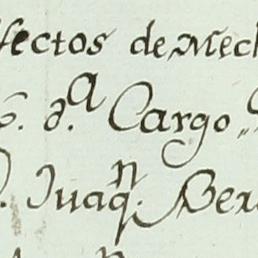 fectos de Mec
6. d.ª Cargo
D. Juaqⁿ. Ber